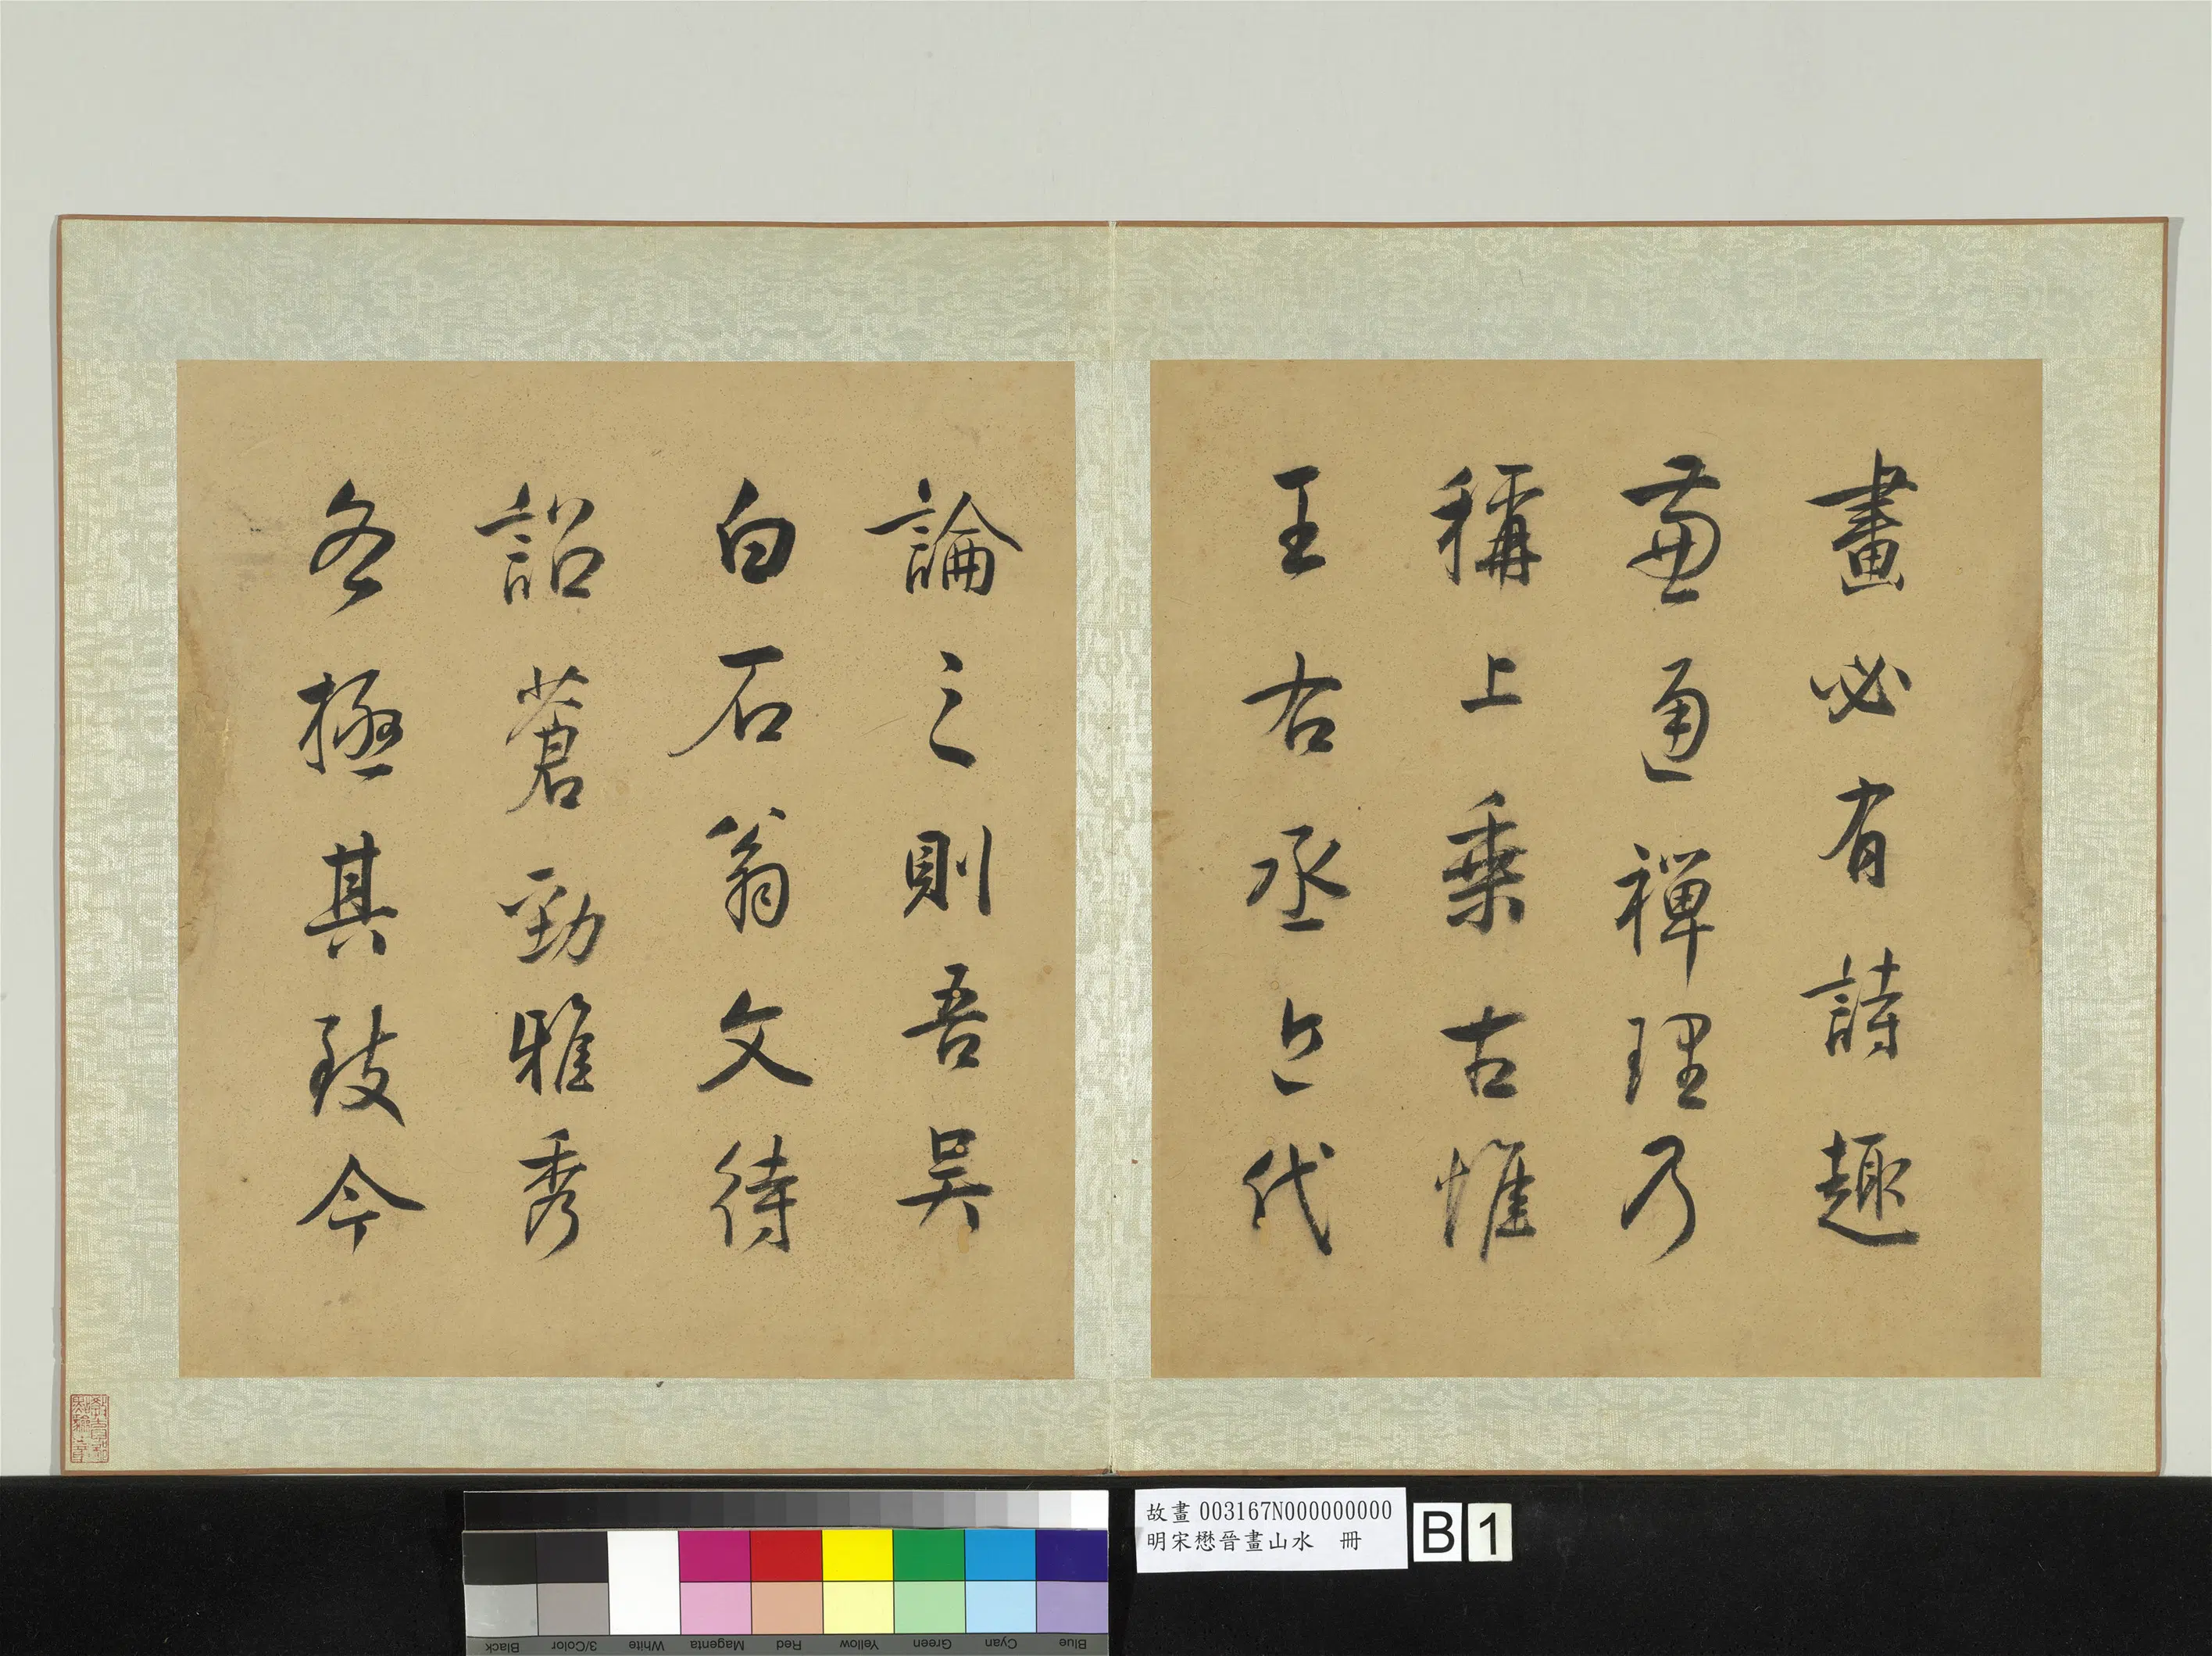 畫必有詩趣
兼通禪理乃
稱上乘古惟
王右丞近代
論之則吾吳
白石翁文待
詔蒼勁雅秀
各極其致今
故畫 003167N000000000
明宋懋晉畫山水 冊
B 1
Black
3/Color
White
Magenta
Red
Yellow
Green
Cyan
Blue